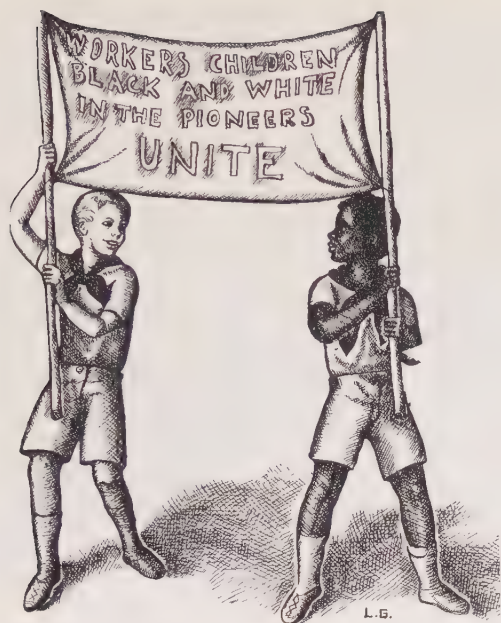 WORKERS CHILDREN
BLACK AND WHITE
IN THE PIONEERS
UNITE
L.G.